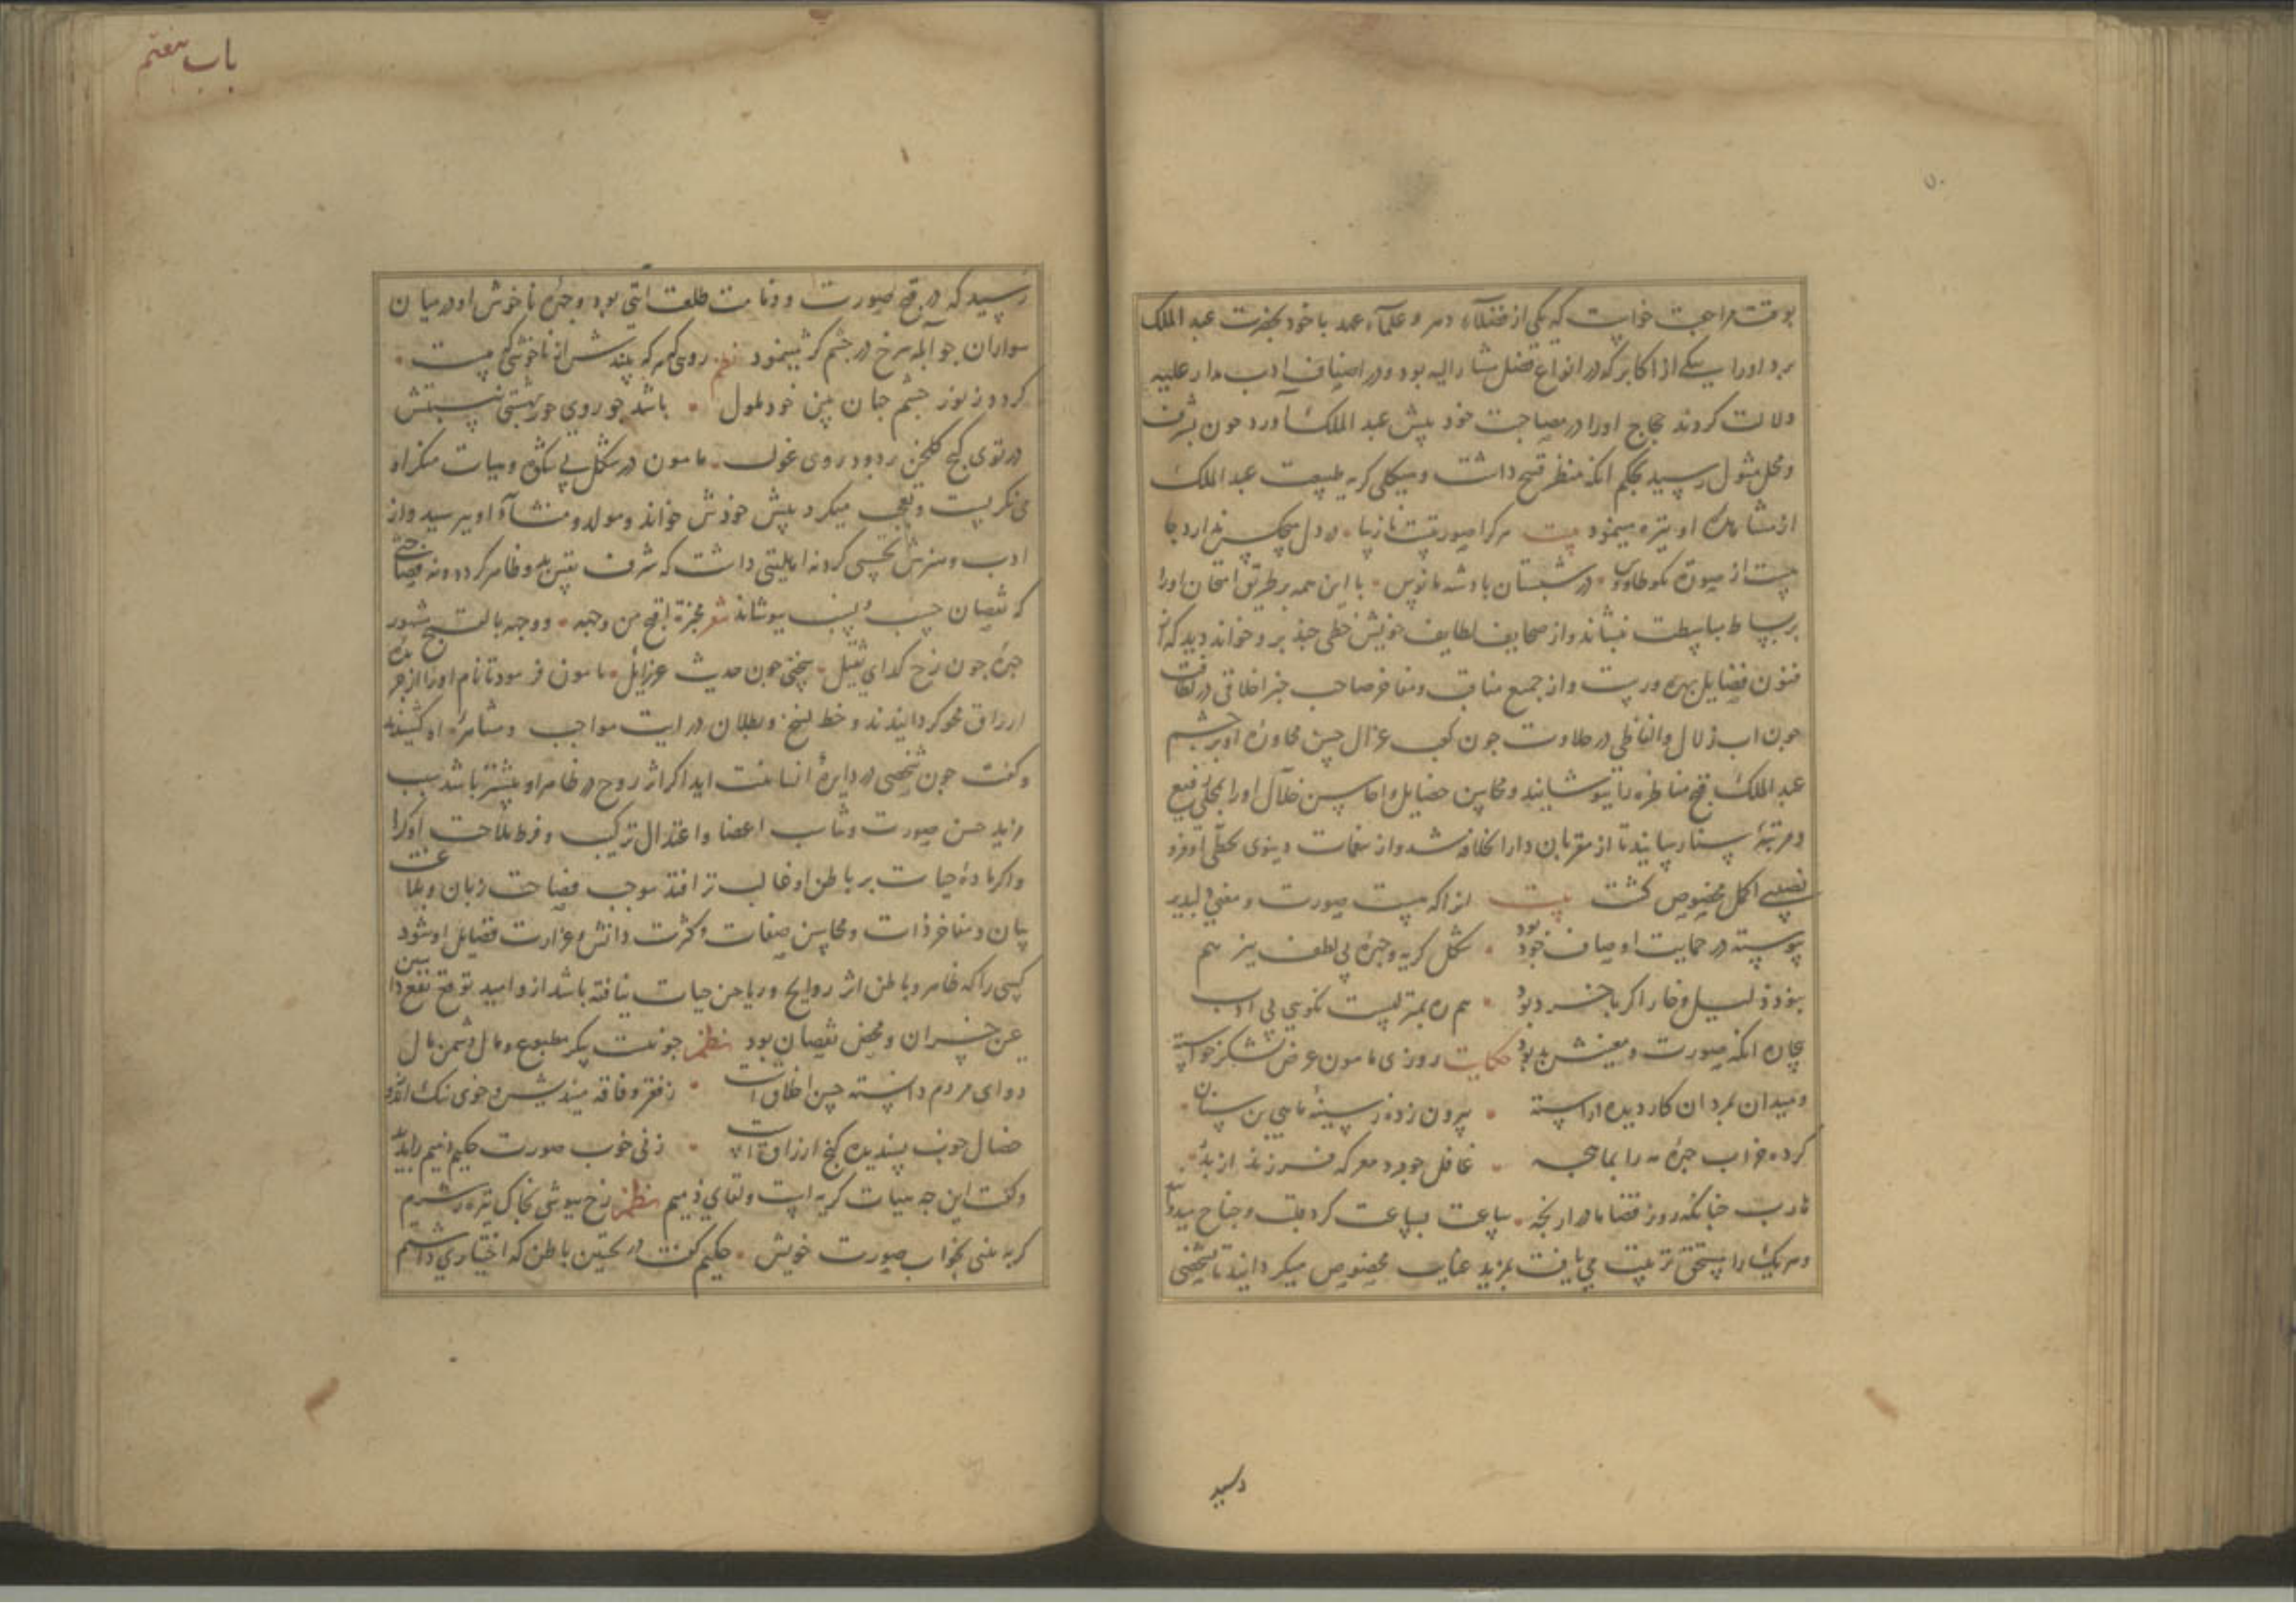 بوقت مراجعت خواست که یکی از فضلاء دهر و علماء عهد با خود بحضرت عبد الملک
برد اورا بیکی از اکابر که در انواع فضل مشار الیه بود و در اصناف ادب مدار علیه
دلالت کردند حجاج اورا در مصاحبت خود پیش عبد الملک آورد چون بشرف
و محل مثول رسید بحکم آنکه منظر قبیح داشت و هیکلی کریه طبیعت عبد الملک
از مشاهدهٔ او تیره مینمود بیت هر کرا صورتیست نا زیبا در دل هیچکس ندارد جا
در شبستان بادشه مانوس با این همه بر طریق امتحان اورا
بر بساط مباسطت بنشاند و از صحایف لطایف خویش خطی چند برو خواند دید که از
فنون فضایل بهره ورست و از جمیع مناقب و مفاخر صاحب خبر اخلاقی در لطافت
چون آب زلال و الفاظی در حلاوت چون غزال حسن محاورهٔ او بر چشم
عبد الملک قبح مناظره را بپوشانید و محاسن خصایل و احاسن خلال اورا بمحلی رفیع
و مرتبهٔ رسانید تا از مقربان دار الخلافه شد و از دنیوی بحظی اوفر و
نصیبی اکمل مخصوص کشت بیت انرا که هست صورت و معنی دلپذیر
پیوسته در حمایت اوصاف خود بود شکل کریه و چهرهٔ بی لطف نیز هم
نبود ذلیل و خوار اگر با خرد بود هم ره بمنزلیست نکویی بی ادب
بیچاره آنکه صورت و معنیش بد بود حکایت روزی مامون عرض لشکر خواسته
و میدان بمردان کار دیده آراسته بیرون زده ز سینهٔ ماهی بن سنان
کرده خراب چهرهٔ مه را
چنانکه روز قضا ساعت بساعت کرد قلب و جناح میدوانید
و هر یک را مستحق تربیت می یافت بمزید عنایت مخصوص میکردانید تا بشخصی
رسید
باب هفتم
رسید که در قبح صورت و دمامت طلعت آیتی بود و چهرهٔ ناخوش او در میان
سواران چو آبله بر رخ در چشم کژ مینمود نظم روی که هر که بیند
کردد ز نور چشم جهان بین خود ملول باشد چو روی حور بهشتی بنسبتش
در توی کنج کلخن پر دود روی غول مامون در شکل بی شکوه و هیات منکر او
می نکریست و تعجب میکرد پیش خودش خواند و مولد و منشاء او پرسید و از
ادب و هنرش تجسس کرد نه اهلیتی داشت که شرف نفس بدو ظاهر کردد و نه فصاحتی
که نقصان حسب و نسب بپوشاند شعر مخبره اقبح من وجهه و وجهه بالقبح مشهور
چهرهٔ چون رخ کدای ثقیل سخنی چون حدیث عزرائیل مامون فرمود تا نام اورا از جریدهٔ
ارزاق محو کردانیدند و خط نسخ و بطلان در آیت مواجب و مشاهرهٔ او کشیدند
و کفت چون شخصی در دایرهٔ انسانیت آید اکر اثر روح در ظاهر او بیشتر باشد سبب
مزید حسن صورت و تناسب اعضا و اعتدال ترکیب و فرط ملاحت او کردد
و اکر مادهٔ حیات بر باطن او غالب تر افتد موجب فصاحت زبان و بلاغت
بیان و مفاخر ذات و محاسن صفات و کثرت دانش و غزارت فضایل او شود
کسی را که ظاهر و باطن اثر روایح و ریاحین حیات نیافته باشد ازو امید توقع نفع داشتن
عین خسران و محض نقصان بود نظم چو نیست پیکر مطبوع و مال دشمن مال
دوای مردم دانسته حسن اخلاق است ز فقر و فاقه میندیش و خوی نیک اندوز
خصال خوب پسندیده کنج ارزاق است زنی خوب صورت حکیم ذمیم را بدید
و کفت این چه هیات کریه است و لقای ذمیم نظم رخ بپوشی بخاک تیره ز شرم
کر ببینی بخواب صورت خویش حکیم کفت در تحسین باطن که اختیاری داشتم